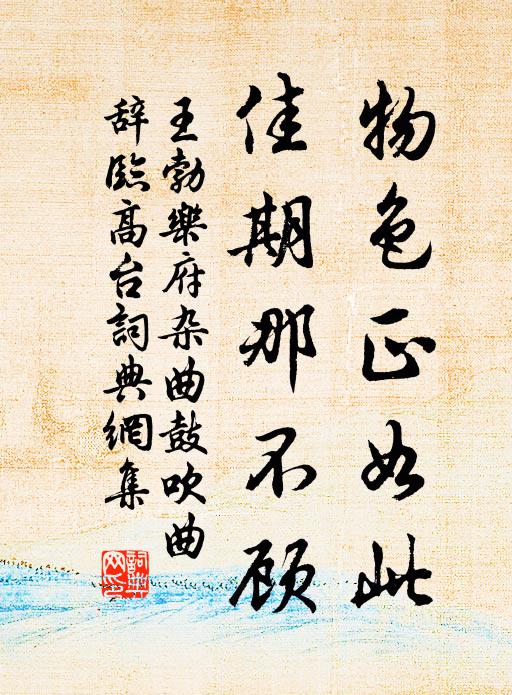 物色正如此
佳期那不顾
王勃樂府杂曲鼓吹曲
辞臨高台詞典網集